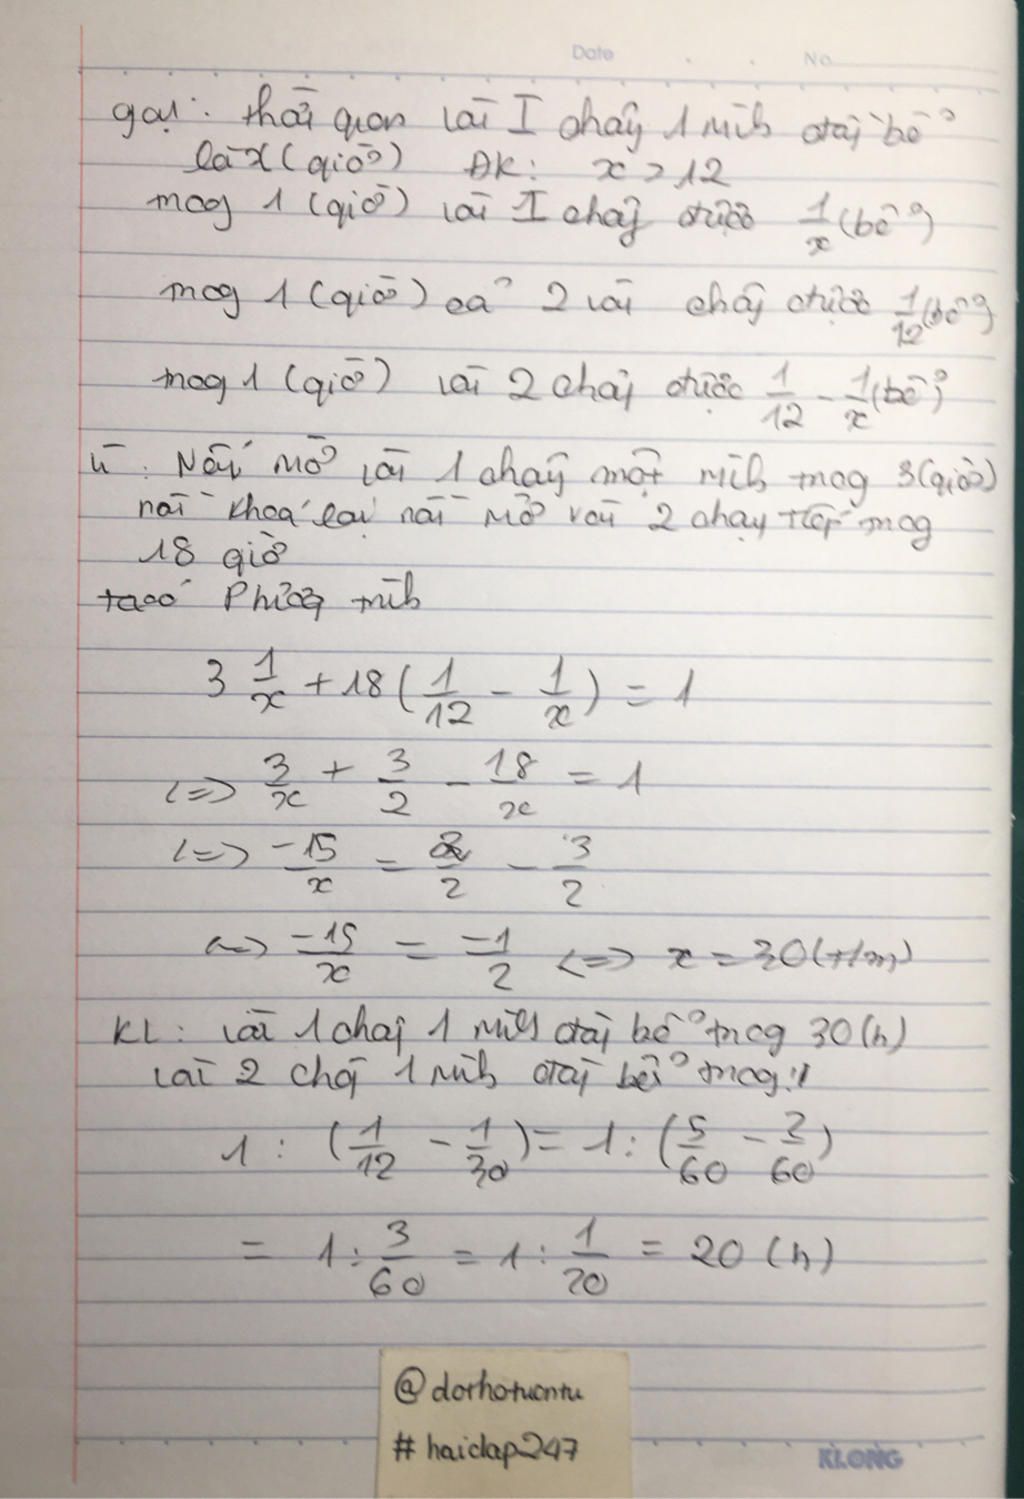 Date No
gọi: thời gian vòi I chảy 1 mình đầy bể
là x (giờ) ĐK: x > 12
trong 1 (giờ) vòi I chảy được 1/x (bể)
trong 1 (giờ) cả 2 vòi chảy được 1/12 (bể)
trong 1 (giờ) vòi 2 chảy được 1/12 - 1/x (bể)
vì. Nếu mở vòi 1 chảy một mình trong 3 (giờ)
rồi khoá lại rồi mở vòi 2 chảy tiếp trong
18 giờ
ta có Phương trình
3 1/x + 18 ( 1/12 - 1/x ) = 1
<=> 3/x + 3/2 - 18/x = 1
<=> -15/x = 2/2 - 3/2
<=> -15/x = -1/2 <=> x = 30 (t/m)
KL: vòi 1 chảy 1 mình đầy bể trong 30 (h)
vòi 2 chảy 1 mình đầy bể trong:
1 : ( 1/12 - 1/30 ) = 1 : ( 5/60 - 2/60 )
= 1 : 3/60 = 1 : 1/20 = 20 (h)
@dorhotuontu
# haiclap247
KLONG